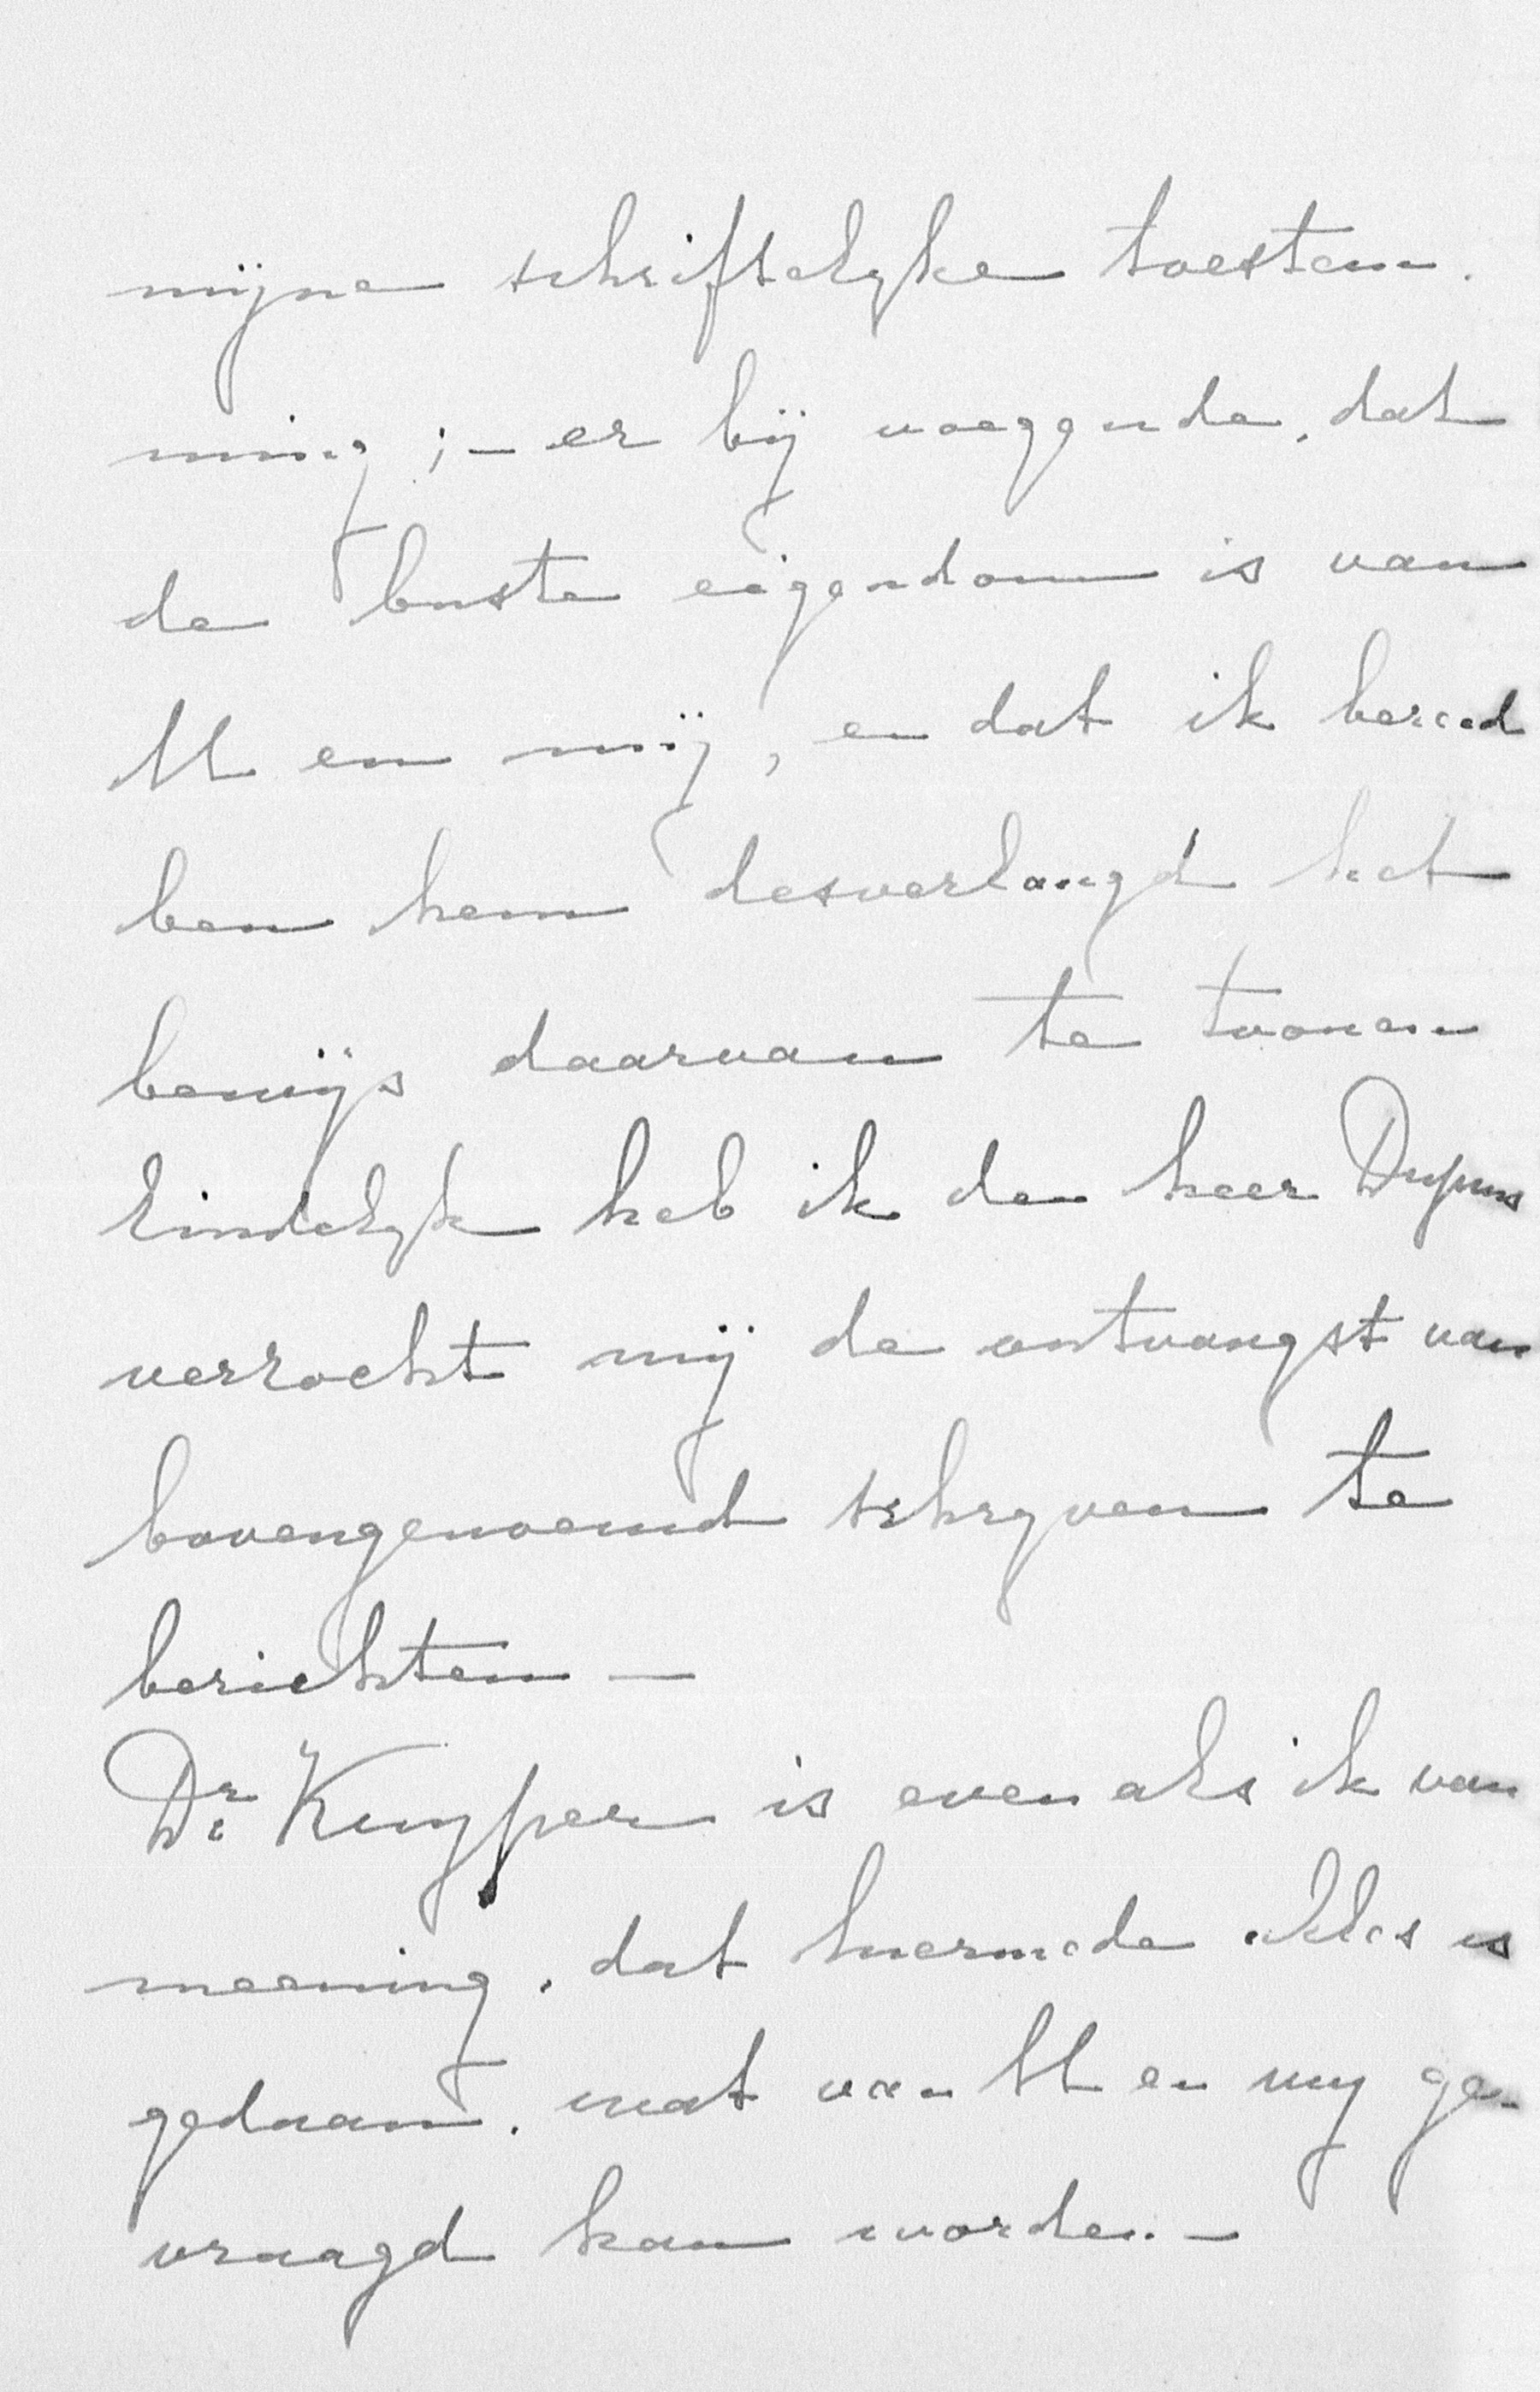 mijne schriftelyke toestem-
ming ;- er bij voegende, dat
de buste eigendom is van
U en mij, en dat ik bereid
ben hem desverlangd het
bewijs daarvan te toonen
Eindelyk heb ik den heer Dupuis
verzocht mij de ontvangst van
bovengenoemd schryven te
berichten —
Dr Kuyper is even als ik van
meening, dat hiermede alles is
gedaan, wat van U en my ge-
vraagd kan worden. —